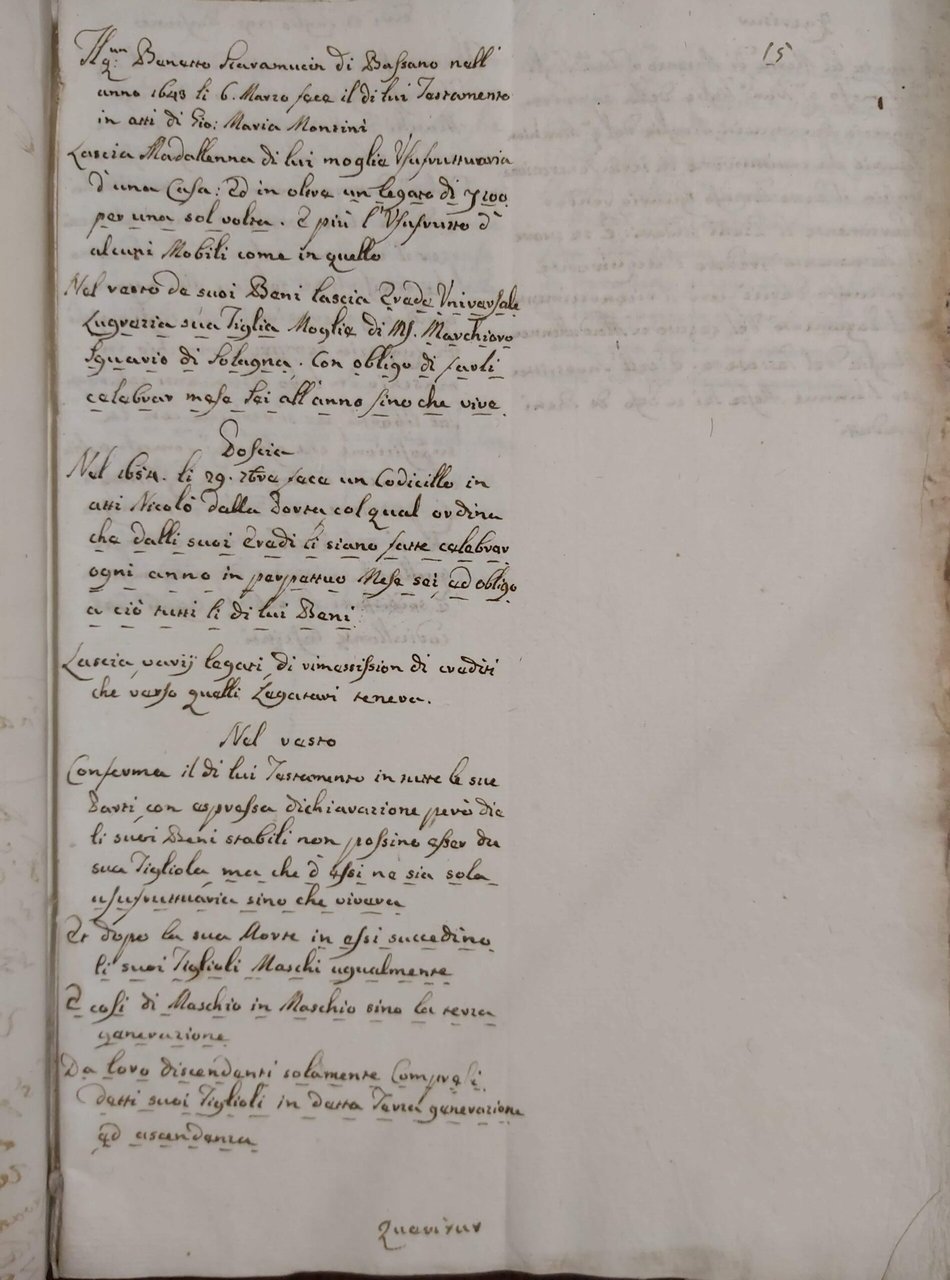 15
Il qu: Benetto Scaramucin di Bassano nell'
anno 1643 li 6. Marzo fece il di lui Testamento
in atti di Gio: Maria Montini
Lascia Madallenna di lui moglie Usufruttuaria
d'una Casa: Ed in oltre un legato di 100
per una sol volta. E più l'Usufrutto d'
alcuni Mobili come in quello
Nel resto de suoi Beni lascia Erede Universale
Lugrezia sua Figlia Moglie di M. Marchioro
Sguario di Solagna. Con obligo di farli
celebrar messe sei all'anno sino che vive
Poscia
Nel 1654. li 29. 7bre fece un Codicillo in
atti Nicolò dalla Porta col qual ordina
che dalli suoi Eredi li siano fatte celebrar
ogni anno in perpettuo Messe sei, ed obligo
a ciò tutti li di lui Beni
Lascia varij legati, di rimessission di crediti
che verso quelli Legatari teneva.
Nel resto
Conferma il di lui Testamento in tutte le sue
Parti, con espressa dichiarazione però che
li suoi Beni stabili non possino esser da
sua Figliola, ma che d'essi ne sia sola
usufruttuaria sino che viverà
Et dopo la sua Morte in essi succedino
li suoi Figlioli Maschi ugualmente
E cosi di Maschio in Maschio sino la terza
generazione
Da loro discendenti solamente Compresi
detti suoi Figlioli in detta Terza generazione
ed ascendenza
Quaritur